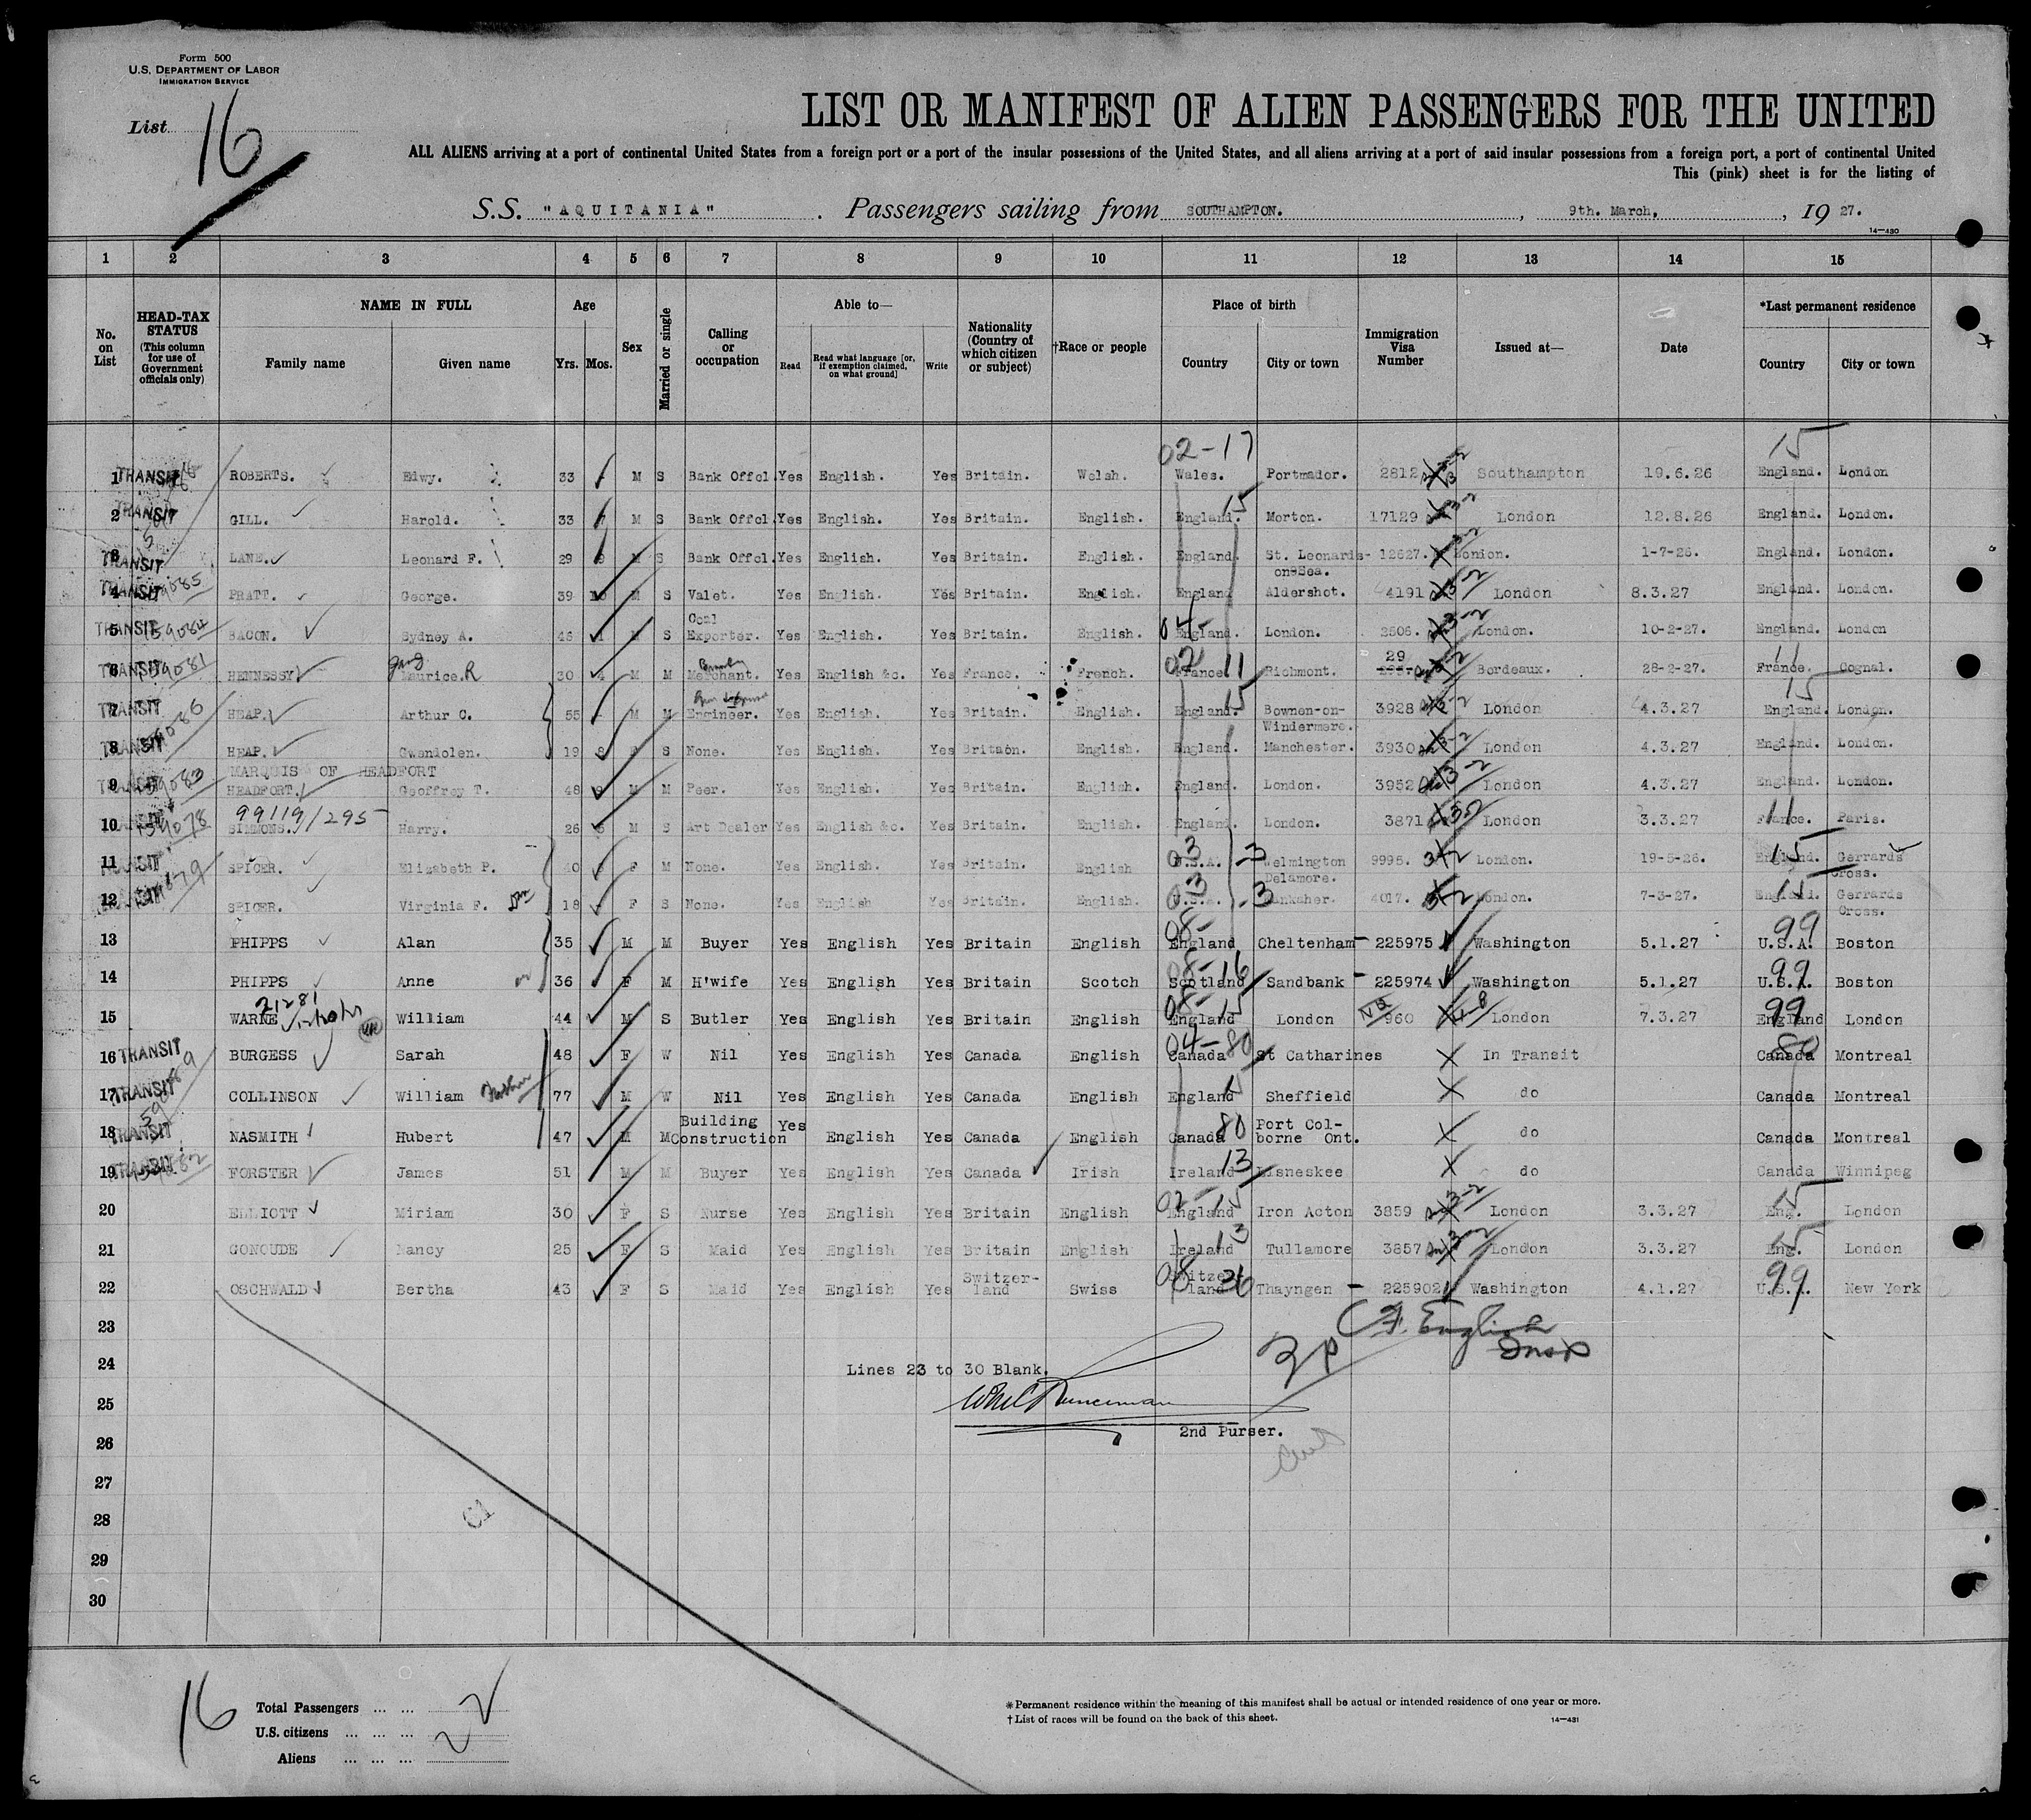 Form 500
U.S. DEPARTMENT OF LABOR
IMMIGRATION SERVICE
List 16
LIST OR MANIFEST OF ALIEN PASSENGERS FOR THE UNITED
ALL ALIENS arriving at a port of continental United States from a foreign port or a port of the insular possessions of the United States, and all aliens arriving at a port of said insular possessions from a foreign port, a port of continental United
This (pink) sheet is for the listing of
S.S. "AQUITANIA". Passengers sailing from SOUTHAMPTON., 9th. March, , 19 27.
14—430
1 2 3 4 5 6 7 8 9 10 11 12 13 14 15
No. on List
HEAD-TAX STATUS (This column for use of Government officials only)
NAME IN FULL Family name Given name
Age Yrs. Mos.
Sex
Married or single
Calling or occupation
Able to— Read Read what language [or, if exemption claimed, on what ground] Write
Nationality (Country of which citizen or subject)
†Race or people
Place of birth Country City or town
Immigration Visa Number
Issued at—
Date
*Last permanent residence Country City or town
02-17 15
1 TRANSIT ROBERTS. Edwy. 33 M S Bank Offcl. Yes English. Yes Britain. Welsh. Wales. Portmador. 2812 Southampton 19.6.26 England. London
2 TRANSIT GILL. Harold. 33 7 M S Bank Offcl. Yes English. Yes Britain. English. England. 15 Morton. 17129 London 12.8.26 England. London.
3 TRANSIT LANE. Leonard F. 29 9 M S Bank Offcl. Yes English. Yes Britain. English. England. St. Leonards-on-Sea. 12627. London. 1-7-26. England. London.
4 TRANSIT 59085 PRATT. George. 39 10 M S Valet. Yes English. Yes Britain. English. England Aldershot. 4191 London 8.3.27 England. London.
5 TRANSIT 59084 BACON. Sydney A. 46 1 M S Coal Exporter. Yes English. Yes Britain. English. 04- England. London. 2606. London. 10-2-27. England. London
6 TRANSIT 59081 HENNESSY Maurice.R 30 4 M M Merchant. Yes English &c. Yes France. French. 02 France 11 Richmont. 29 Bordeaux. 28-2-27. France. 11 Cognal.
7 TRANSIT 59086 HEAP. Arthur C. 55 M M Engineer. Yes English. Yes Britain. English. England. 15 Bownen-on-Windermere. 3928 London 4.3.27 15 England. London.
8 TRANSIT HEAP. Gwendolen. 19 8 F S None. Yes English. Yes Britain. English. England. Manchester. 3930 London 4.3.27 England. London.
MARQUIS OF HEADFORT
9 TRANSIT 59083 HEADFORT. Geoffrey T. 48 9 M M Peer. Yes English. Yes Britain. English. England. London. 3952 London 4.3.27 England. London.
99119/295
10 TRANSIT 59078 SIMMONS. Harry. 26 6 M S Art Dealer Yes English &c. Yes Britain. English. England. London. 3871 London 3.3.27 11 France. Paris.
11 TRANSIT SPICER. Elizabeth P. 40 F M None. Yes English. Yes Britain. English 03 U.S.A. -3 Welmington Delamore. 9995. London. 19-5-26. 15 England. Gerrards Cross.
12 TRANSIT SPICER. Virginia F. 18 F S None. Yes English Yes Britain. English. 03 U.S.A. -3 4017. London. 7-3-27. England. Gerrards Cross.
13 PHIPPS Alan 35 M M Buyer Yes English Yes Britain English 08- England Cheltenham 225975 Washington 5.1.27 99 U.S.A. Boston
14 PHIPPS Anne 36 F M H'wife Yes English Yes Britain Scotch 08-16 Scotland Sandbank 225974 Washington 5.1.27 99 U.S.A. Boston
21281
15 WARNE William 44 M S Butler Yes English Yes Britain English 08-15 England London 960 London 7.3.27 99 England London
16 TRANSIT BURGESS Sarah 48 F W Nil Yes English Yes Canada English 04-80 Canada St Catharines In Transit 80 Canada Montreal
17 TRANSIT COLLINSON William Father 77 M W Nil Yes English Yes Canada English England 15 Sheffield do Canada Montreal
18 TRANSIT NASMITH Hubert 47 M M Building Construction Yes English Yes Canada English Canada 80 Port Col-borne Ont. do Canada Montreal
19 TRANSIT FORSTER James 51 M M Buyer Yes English Yes Canada Irish Ireland 13 Lisneskee do Canada Winnipeg
20 ELLIOTT Miriam 30 F S Nurse Yes English Yes Britain English 02-15 England Iron Acton 3859 London 3.3.27 15 Eng. London
21 GONOUDE Nancy 25 F S Maid Yes English Yes Britain English Ireland 13 Tullamore 3857 London 3.3.27 15 Eng. London
22 OSCHWALD Bertha 43 F S Maid Yes English Yes Switzer-land Swiss 08 Switzer-land 26 Thayngen 225902 Washington 4.1.27 99 U.S.A. New York
23
C.F. English
Insp
24
Lines 23 to 30 Blank.
25
2nd Purser.
26
27
28
C1
29
30
16
Total Passengers ... ... 22
U.S. citizens ... ... ...
Aliens ... ... ...
*Permanent residence within the meaning of this manifest shall be actual or intended residence of one year or more.
†List of races will be found on the back of this sheet.
14—431